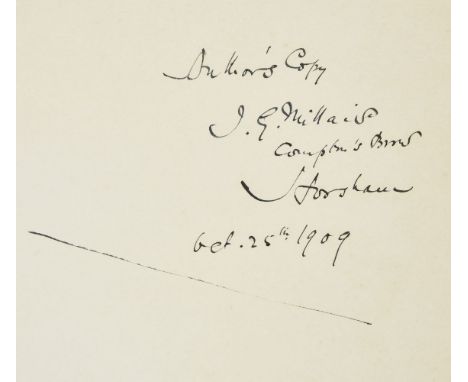 Author's Copy
J. G. Millais
Compton's Brow
Horsham
Oct. 25th 1909